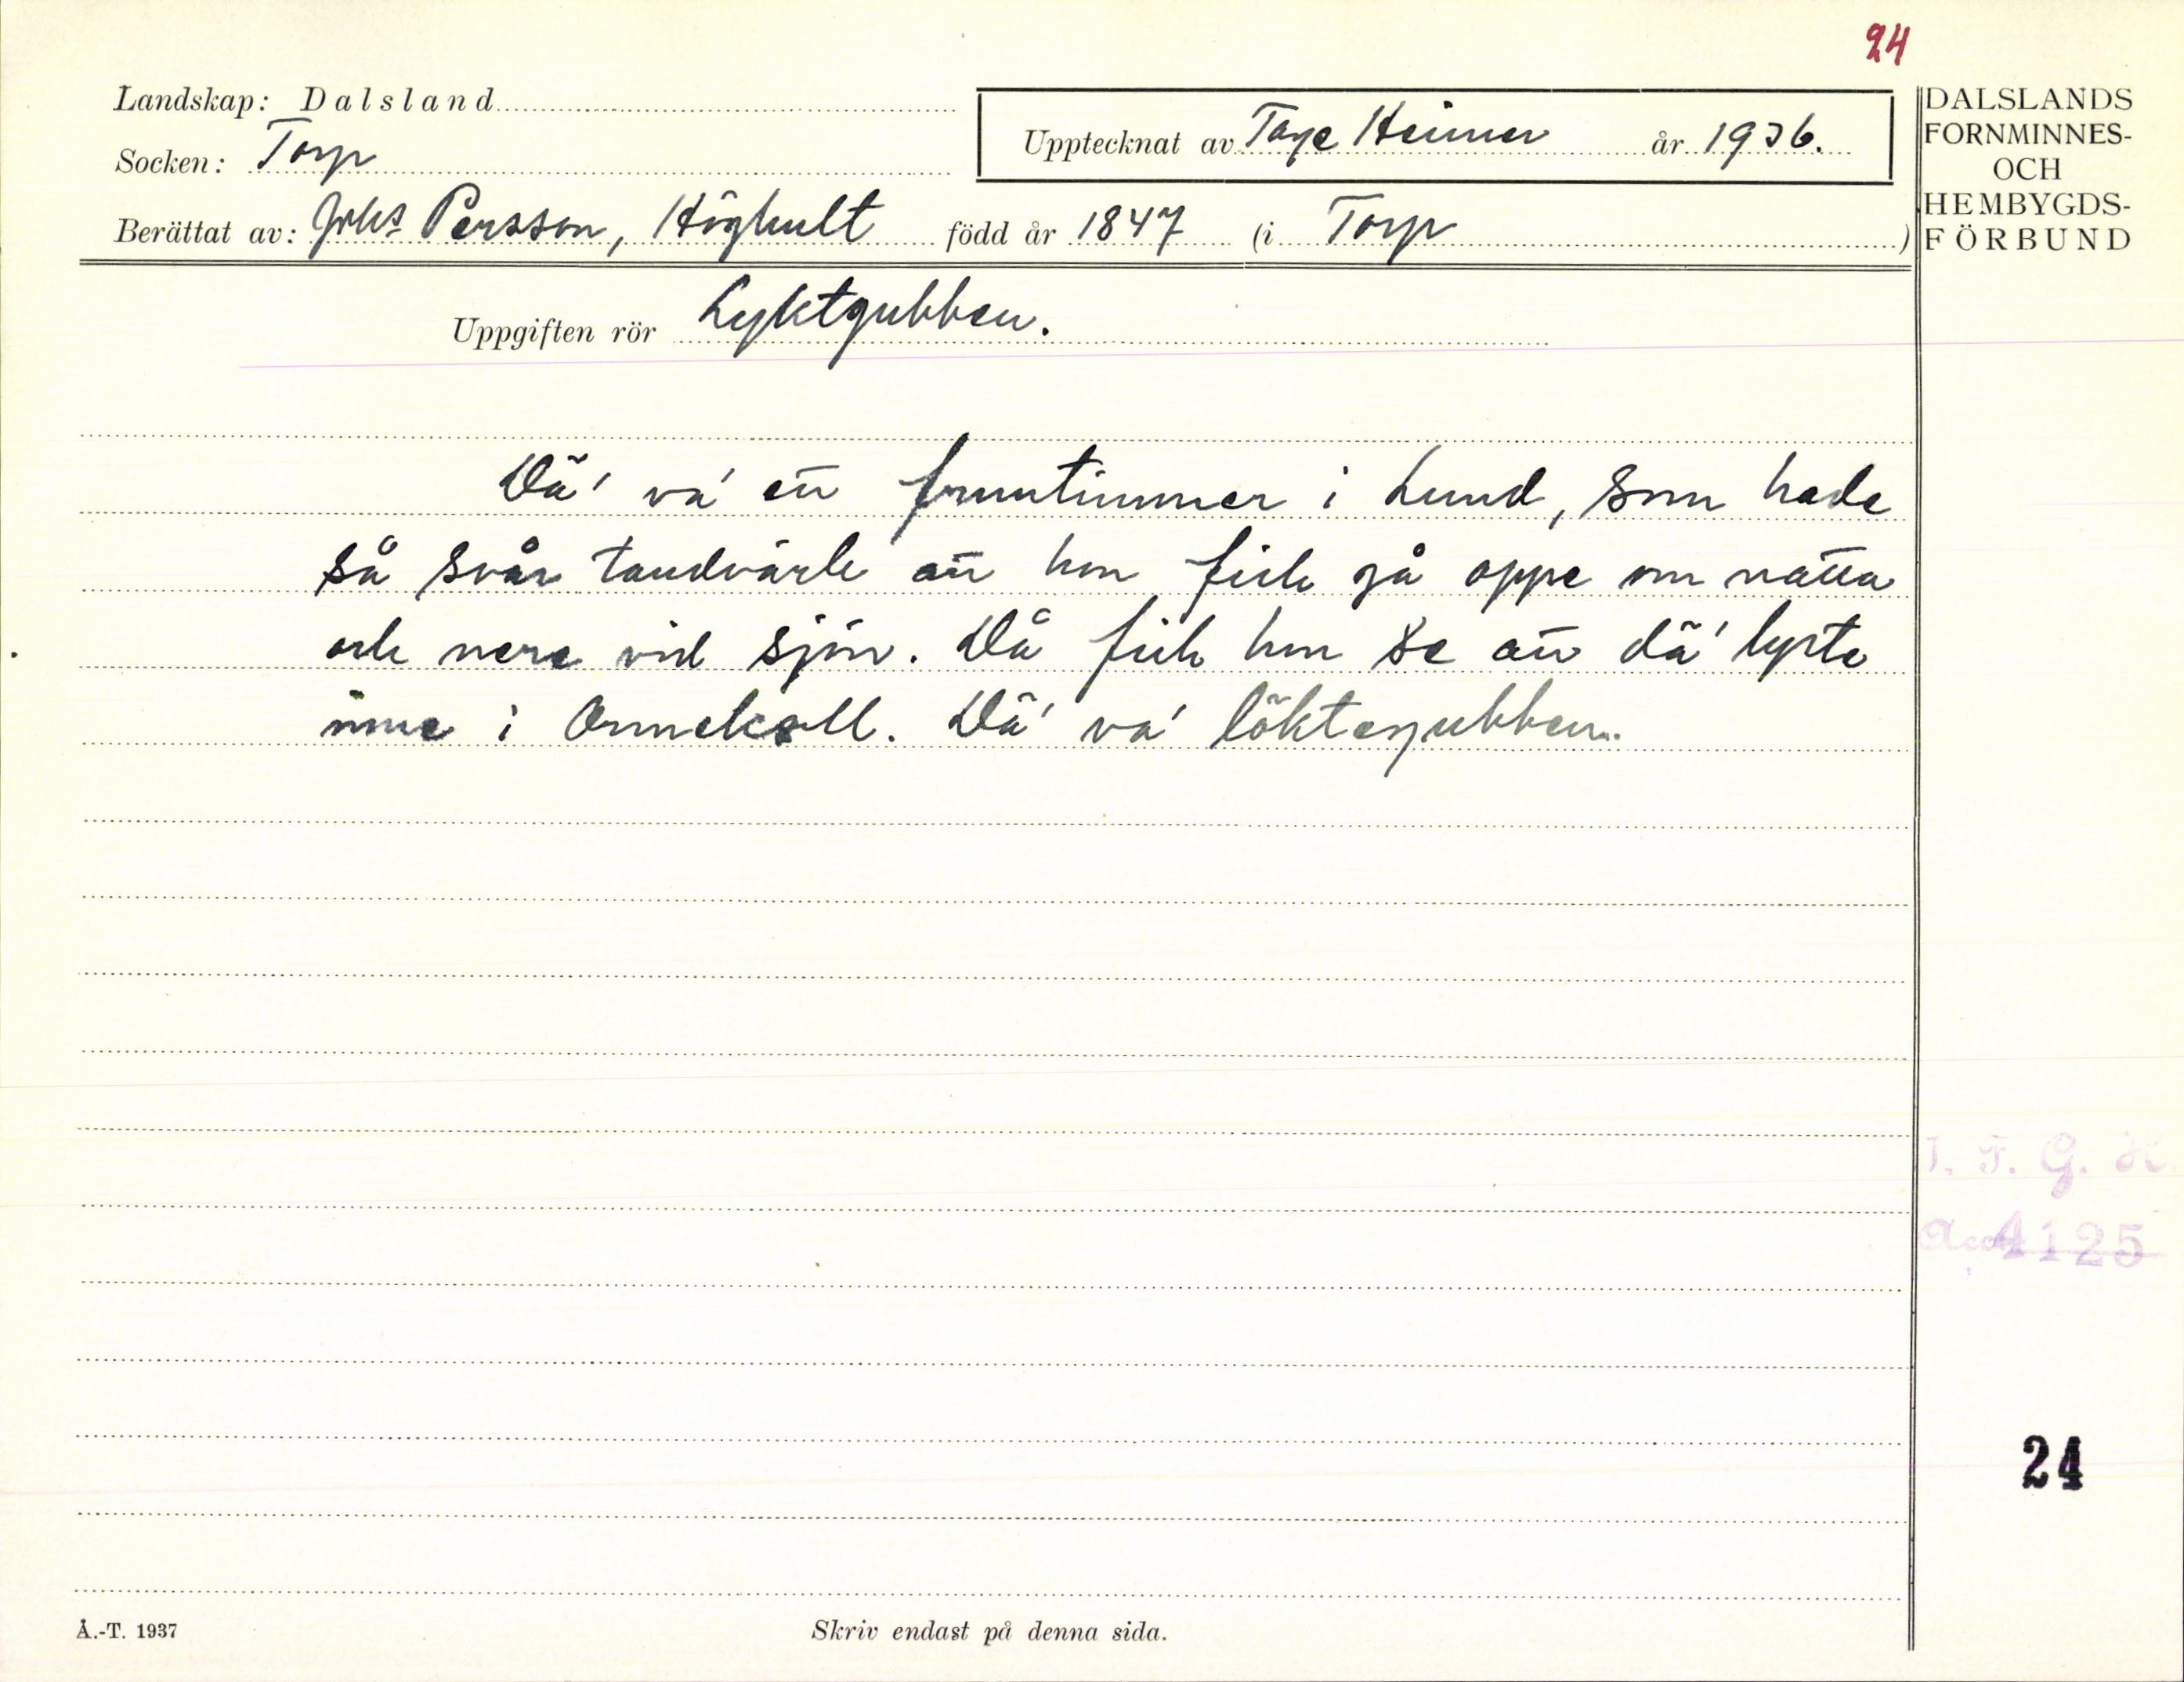 24
Landskap: Dalsland
Upptecknat av Tage Heimer år 1936.
Socken: Torp
Berättat av: Johs Persson, Höghult född år 1847 (i Torp)
DALSLANDS
FORNMINNES-
OCH
HEMBYGDS-
FÖRBUND
Uppgiften rör Lyktgubben.
Dä' va' ett fruntimmer i Lund, som hade
så svår tandvärk att hon fick gå oppe om natta
och nere vid sjön. Då fick hon se att dä' lyste
inne i Ormekall. Dä' va' löktegubben.
I. F. G. H.
Acc. 4125
24
Å.-T. 1937
Skriv endast på denna sida.